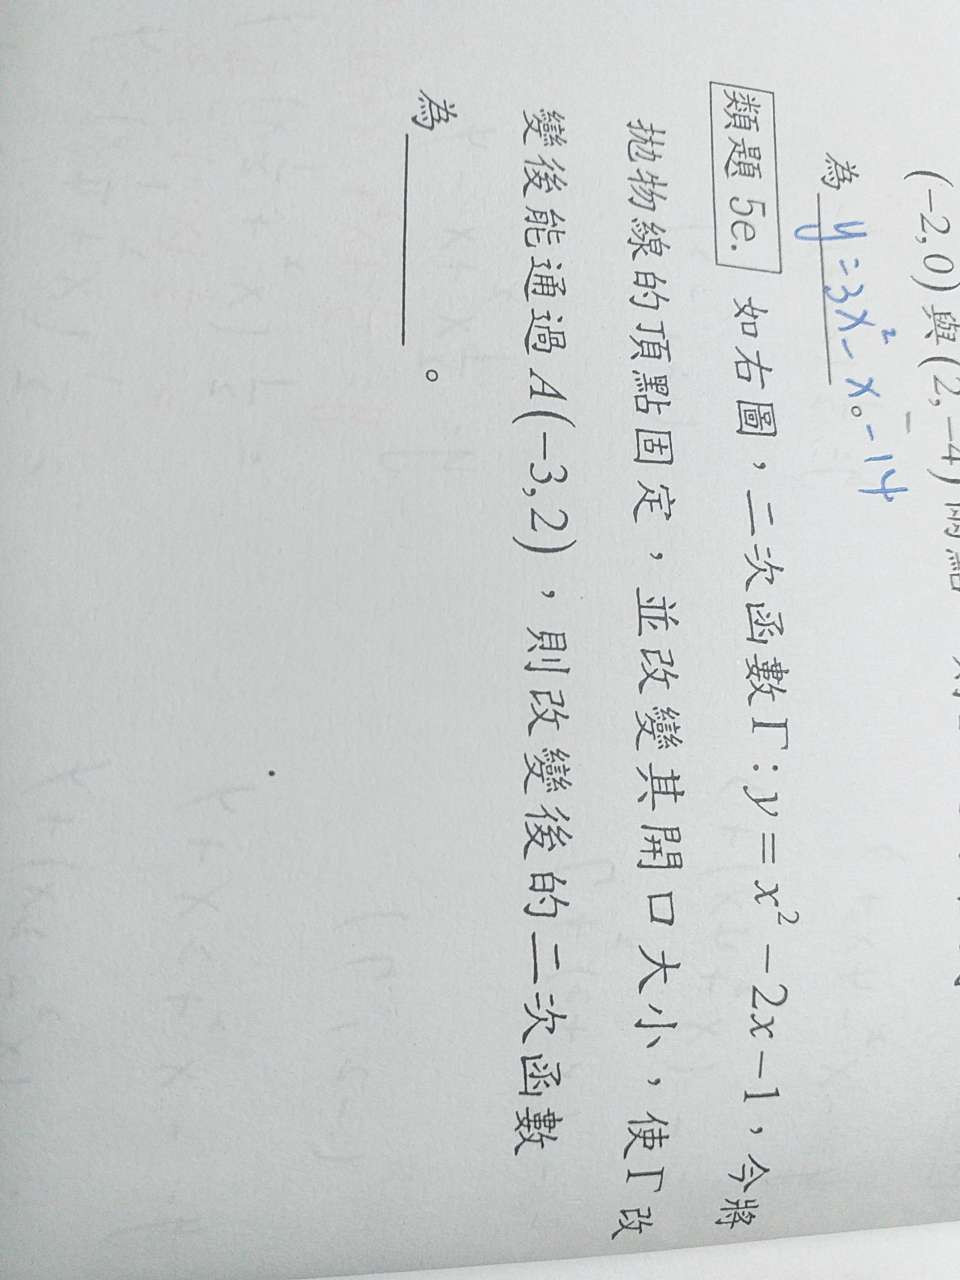 (-2,0)與(2,-4)兩點
為 y=3x²-x-14。
類題 5e. 如右圖，二次函數Γ：y=x²-2x-1，今將
拋物線的頂點固定，並改變其開口大小，使Γ改
變後能通過A(-3,2)，則改變後的二次函數
為________。